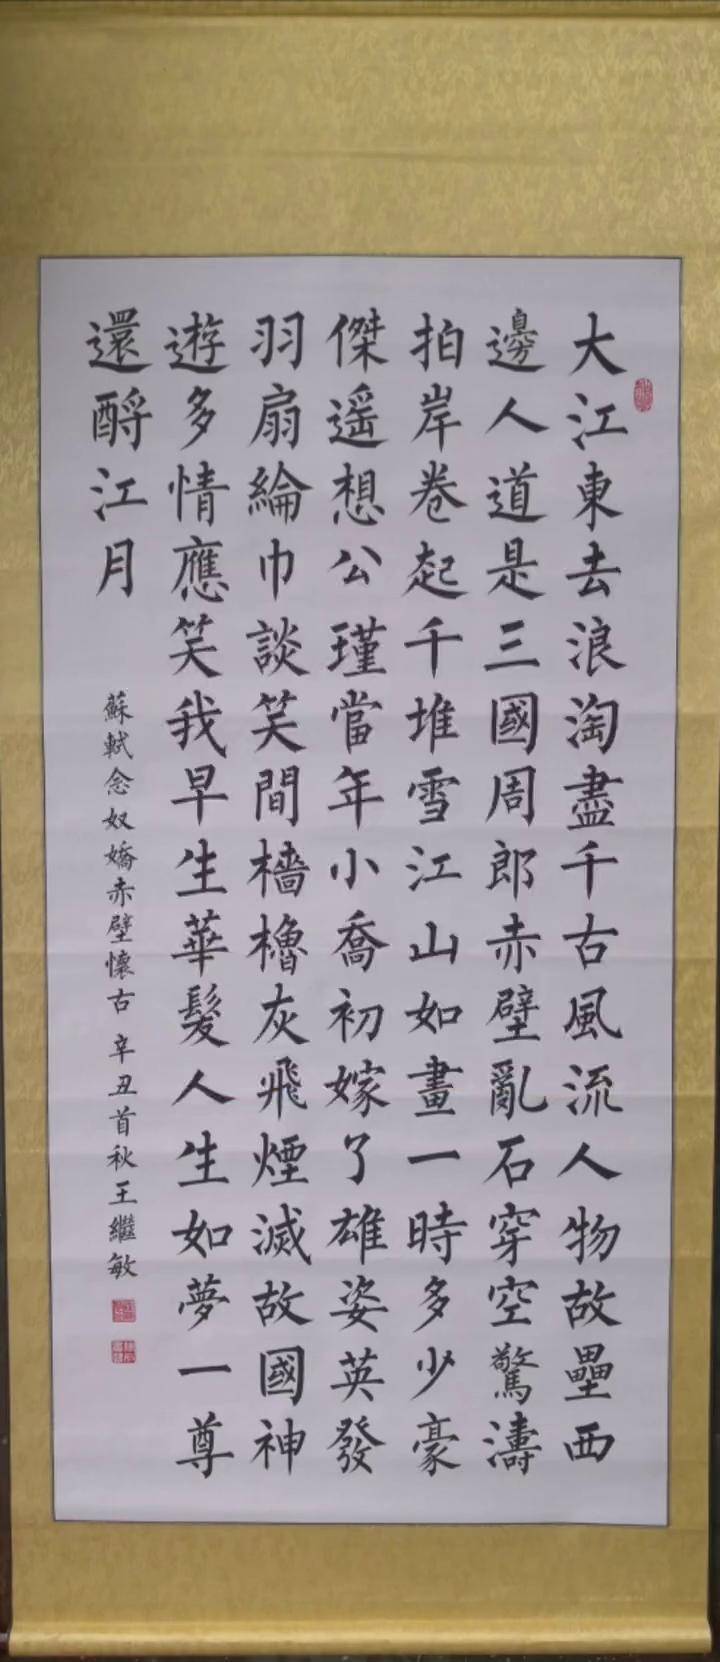 大江東去浪淘盡千古風流人物故壘西
邊人道是三國周郎赤壁亂石穿空驚濤
拍岸卷起千堆雪江山如畫一時多少豪
傑遥想公瑾當年小喬初嫁了雄姿英發
羽扇綸巾談笑間檣櫓灰飛煙滅故國神
遊多情應笑我早生華髮人生如夢一尊
還酹江月
蘇軾念奴嬌赤壁懷古 辛丑首秋王繼敏